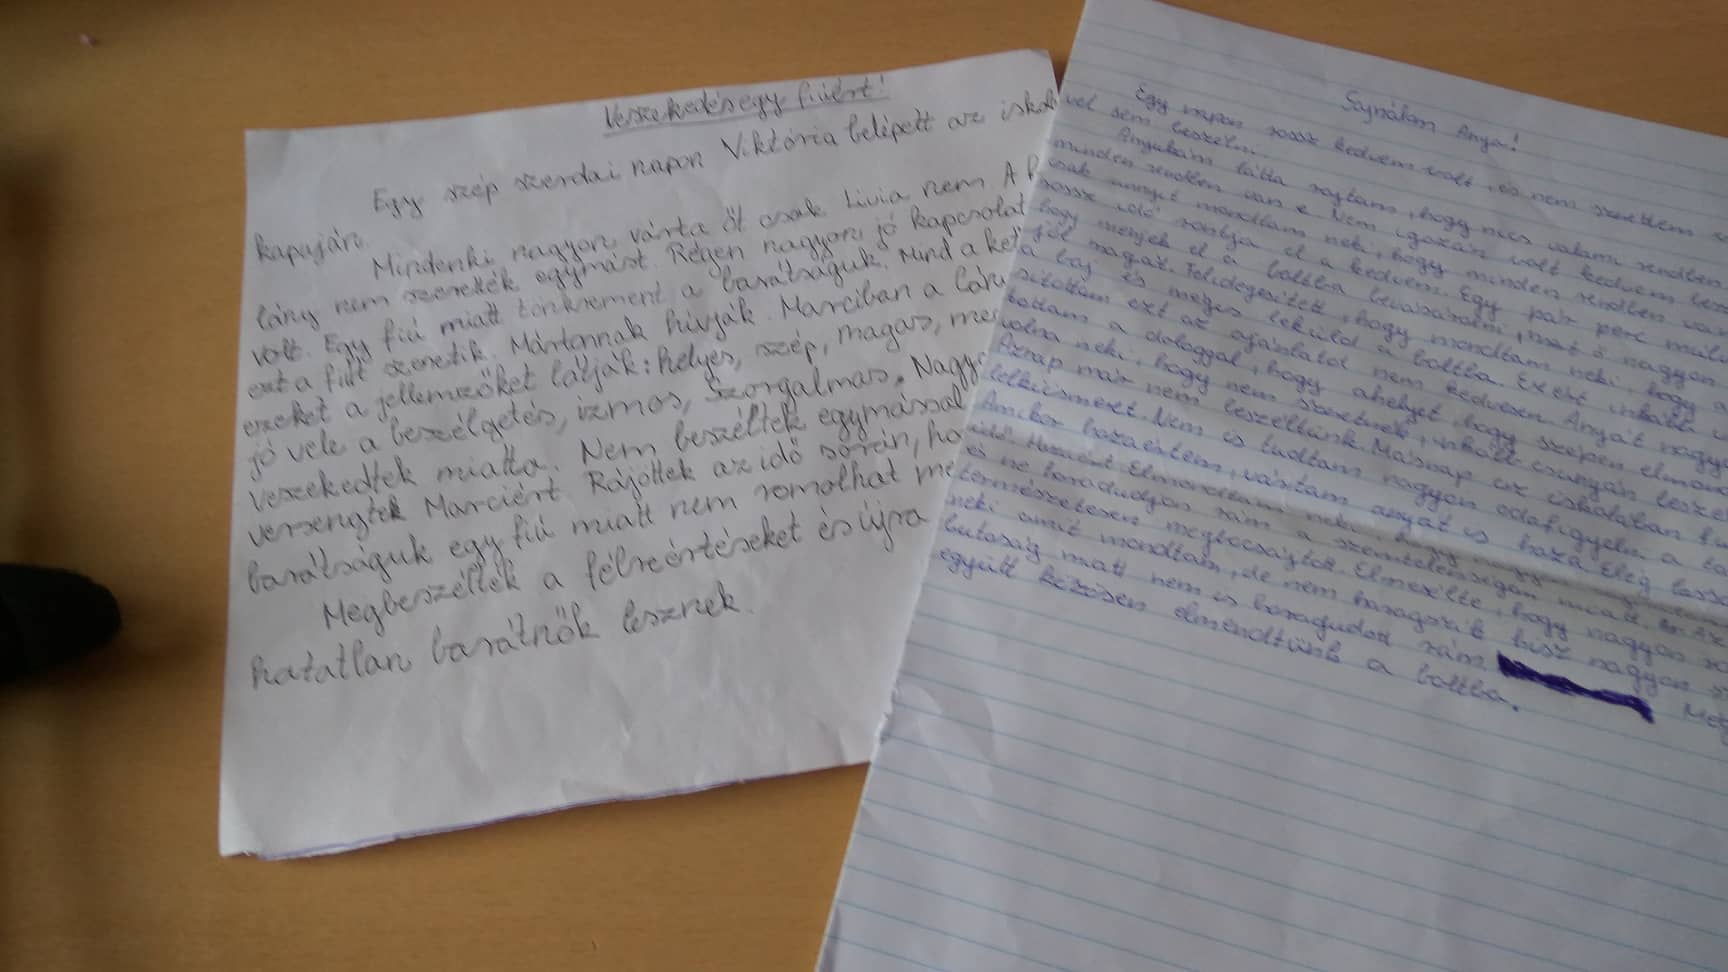 Veszekedés egy fiúért!
Egy szép szerdai napon Viktória belépett az iskol
kapuján.
Mindenki nagyon várta őt csak Lívia nem. A
lány nem szerették egymást. Régen nagyon jó kapcsolat
volt. Egy fiú miatt tönkrement a barátságuk. Mind a ket
ezt a fiút szeretik. Mártonnak hívják. Marciban a lány
ezeket a jellemzőket látják: helyes, szép, magas,
jó vele a beszélgetés, izmos, szorgalmas. Nagyo
veszekedtek miatta. Nem beszéltek egymással
versengtek Marciért. Rájöttek az idő során, ho
barátságuk egy fiú miatt nem romolhat me
Megbeszélték a félreértéseket és újra
hatatlan barátnők lesznek.
Sajnálom Anya!
Egy napon rossz kedvem volt, és nem szerettem
vel sem beszélni.
Anyukám látta rajtam, hogy nincs valami rendben
minden rendben van e. Nem igazán volt kedvem
csak annyit mondtam neki, hogy minden rendben van
rossz idő rontja el a kedvem. Egy pár perc múlva
hogy menjek el a boltba bevásárolni, mert ő nagyon
jól magát. Felidegesített, hogy mondtam neki, hogy
a baj és mégis leküld a boltba. Ezért inkább
ezt az ajánlatot nem kedvesen. Anyát nagyon
a dologgal, hogy ahelyett, hogy szépen
volna neki, hogy nem szeretnék, inkább csúnyán
Aznap már nem beszéltünk. Másnap az iskolában
lelkiismeret. Nem is tudtam nagyon odafigyelni a
Amikor hazaértem, vártam anyát is haza. Elég lassan
idő. Hazaért. Elmondtam neki, hogy
és ne haragudjon rám a szemtelenségem miatt.
természetesen megbocsájtott. Elmesélte, hogy nagyon
neki amit mondtam, de nem haragszik hisz nagyon
butaság miatt nem is haragudott rám.
együtt közösen elmentünk a boltba.